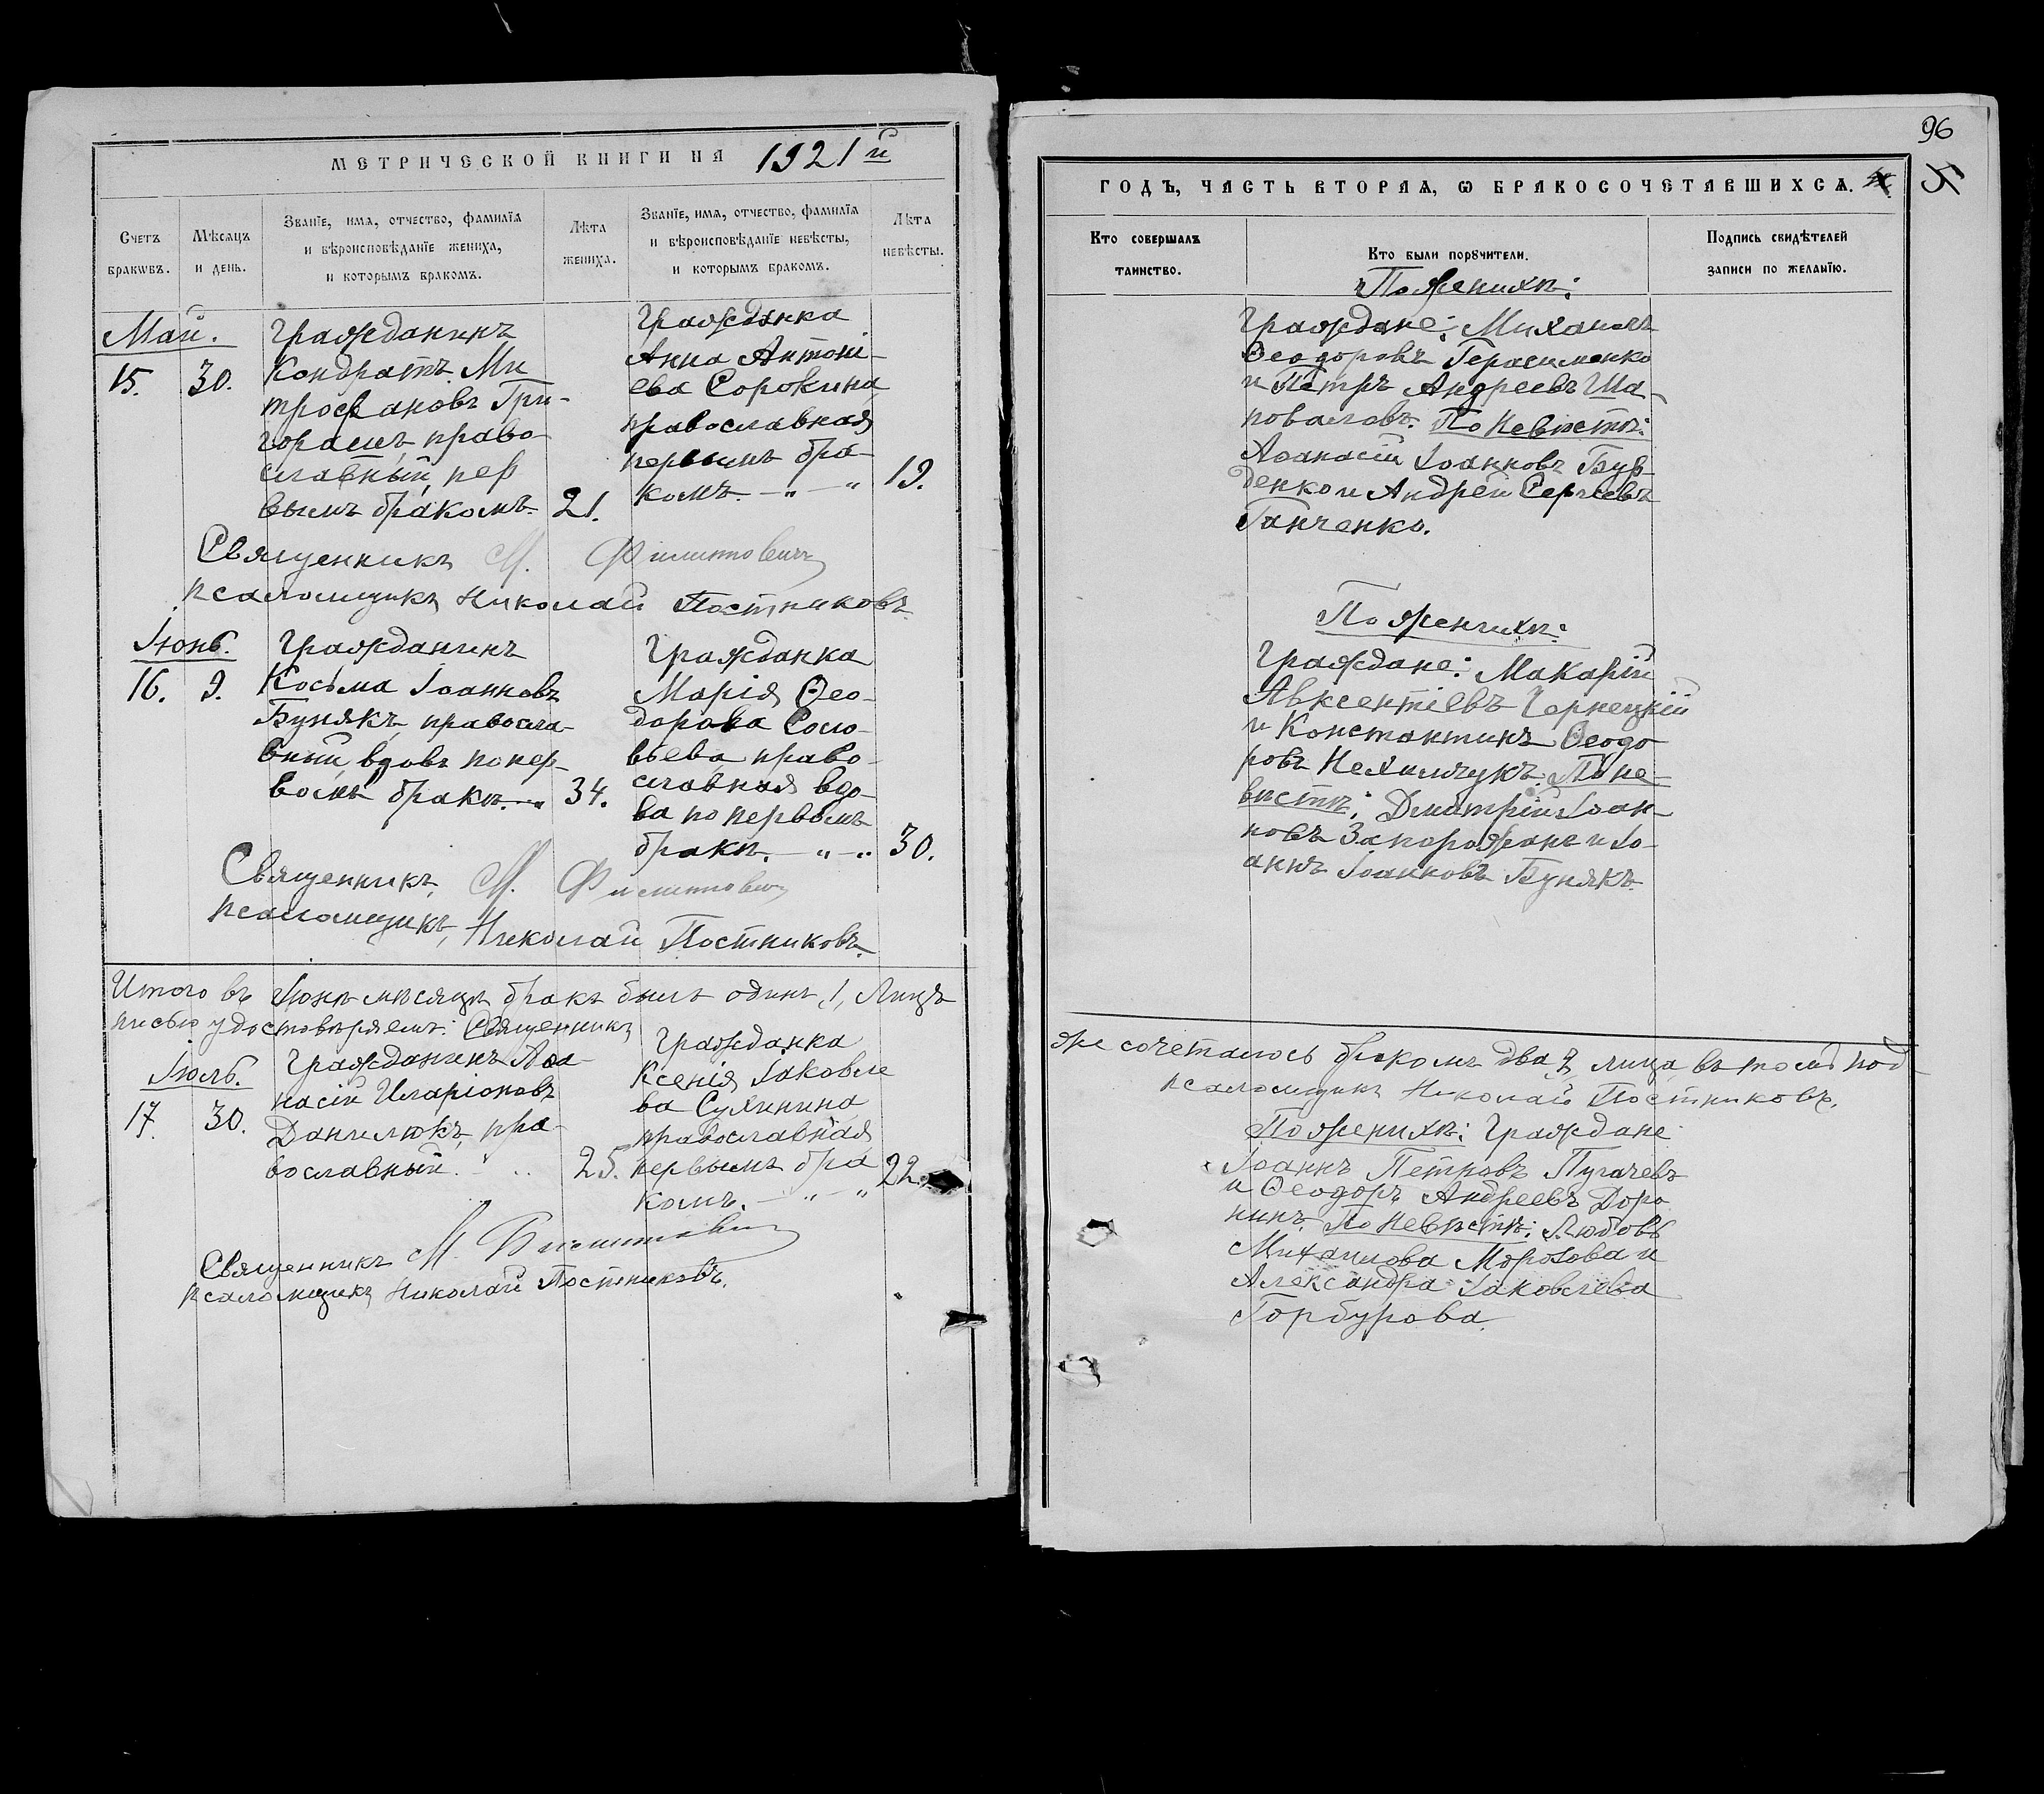 МЕТРИЧЕСКОЙ КНИГИ НА 1921 й
Счетъ браковъ.
Мѣсяцъ и день.
Званїе, имя, отчество, фамилїя
и вѣроисповѣданїе жениха,
и которымъ бракомъ.
Лѣта
жениха.
Званїе, имя, отчество, фамилїя
и вѣроисповѣданїе невѣсты,
и которымъ бракомъ.
Лѣта
невѣсты.
Май.
15. 30.
Гражданинъ
Кондратъ Ми
трофановъ Гри-
горашъ, право
славный, пер
вымъ бракомъ. 21.
Гражданка
Анна Антоні-
ева Сорокина
православная
первымъ бра-
комъ. — „ — „ 19.
Священникъ М. Филиповичъ
псаломщикъ Николай Постниковъ.
Іюнь.
16. 9.
Гражданинъ
Косьма Іоанновъ
Бунякъ, правосла-
вный, вдовъ по пер-
вомъ бракѣ. 34.
Гражданка
Марія Ѳео-
дорова Соло-
вьева, право-
славная вдо-
ва по первомъ
бракѣ. — „ — „ 30.
Священникъ, М. Филиповичъ
псаломщикъ, Николай Постниковъ.
Итого въ Іюнѣ мѣсяцѣ бракъ былъ одинъ, 1, Лицъ
писью удостовѣряемъ: Священникъ
Іюль.
17. 30.
Гражданинъ Аѳа-
насій Иларіоновъ
Данилюкъ, пра-
вославный. 25.
Гражданка
Ксенія Іаковле
ва Сулинина
православная
первымъ бра
комъ. — „ — „ 22.
Священникъ М. Филиповичъ
псаломщикъ Николай Постниковъ.
96
ГОДЪ, ЧАСТЬ ВТОРАЯ, Ѡ БРАКОСОЧЕТАВШИХСЯ.
Кто совершалъ
таинство.
Кто были порꙋчители.
Подпись свидѣтелей
записи по желанїю.
По женихѣ:
Граждане: Михаилъ
Ѳеодоровъ Герасименко
и Петръ Андреевъ Ша-
поваловъ. По невѣстѣ:
Аѳанасій Іоанновъ Бур-
денко и Андрей Сергіевъ
Ганченко.
По женихѣ:
Граждане: Макарій
Авксентіевъ Чернецкій
и Константинъ Ѳеодо
ровъ Нехимчукъ. По не-
вѣстѣ: Дмитрій Іоан-
новъ Запорожанъ и Іо-
аннъ Іоанновъ Бунякъ.
же сочеталось бракомъ два, 2, лица, въ томъ под-
псаломщикъ Николай Постниковъ.
По женихѣ: Граждане
Іоаннъ Петровъ Пугачевъ
и Ѳеодоръ Андреевъ Доро
нинъ. По невѣстѣ: Любовь
Михаилова Морозова и
Александра Іаковлева
Горбурова.